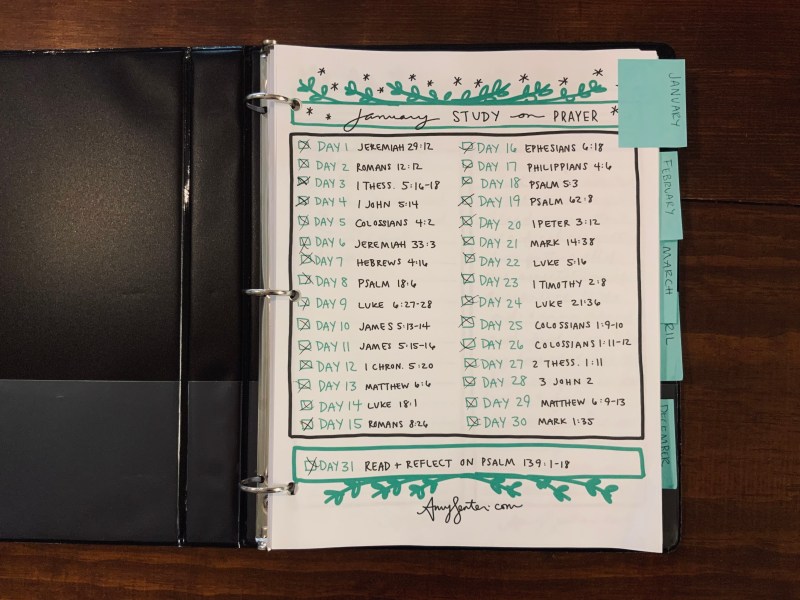 January STUDY on PRAYER
DAY 1 JEREMIAH 29:12
DAY 2 ROMANS 12:12
DAY 3 1 THESS. 5:16-18
DAY 4 1 JOHN 5:14
DAY 5 COLOSSIANS 4:2
DAY 6 JEREMIAH 33:3
DAY 7 HEBREWS 4:16
DAY 8 PSALM 18:6
DAY 9 LUKE 6:27-28
DAY 10 JAMES 5:13-14
DAY 11 JAMES 5:15-16
DAY 12 1 CHRON. 5:20
DAY 13 MATTHEW 6:6
DAY 14 LUKE 18:1
DAY 15 ROMANS 8:26
DAY 16 EPHESIANS 6:18
DAY 17 PHILIPPIANS 4:6
DAY 18 PSALM 5:3
DAY 19 PSALM 62:8
DAY 20 1 PETER 3:12
DAY 21 MARK 14:38
DAY 22 LUKE 5:16
DAY 23 1 TIMOTHY 2:8
DAY 24 LUKE 21:36
DAY 25 COLOSSIANS 1:9-10
DAY 26 COLOSSIANS 1:11-12
DAY 27 2 THESS. 1:11
DAY 28 3 JOHN 2
DAY 29 MATTHEW 6:9-13
DAY 30 MARK 1:35
DAY 31 READ + REFLECT ON PSALM 139:1-18
JANUARY
FEBRUARY
MARCH
RIL
DECEMBER